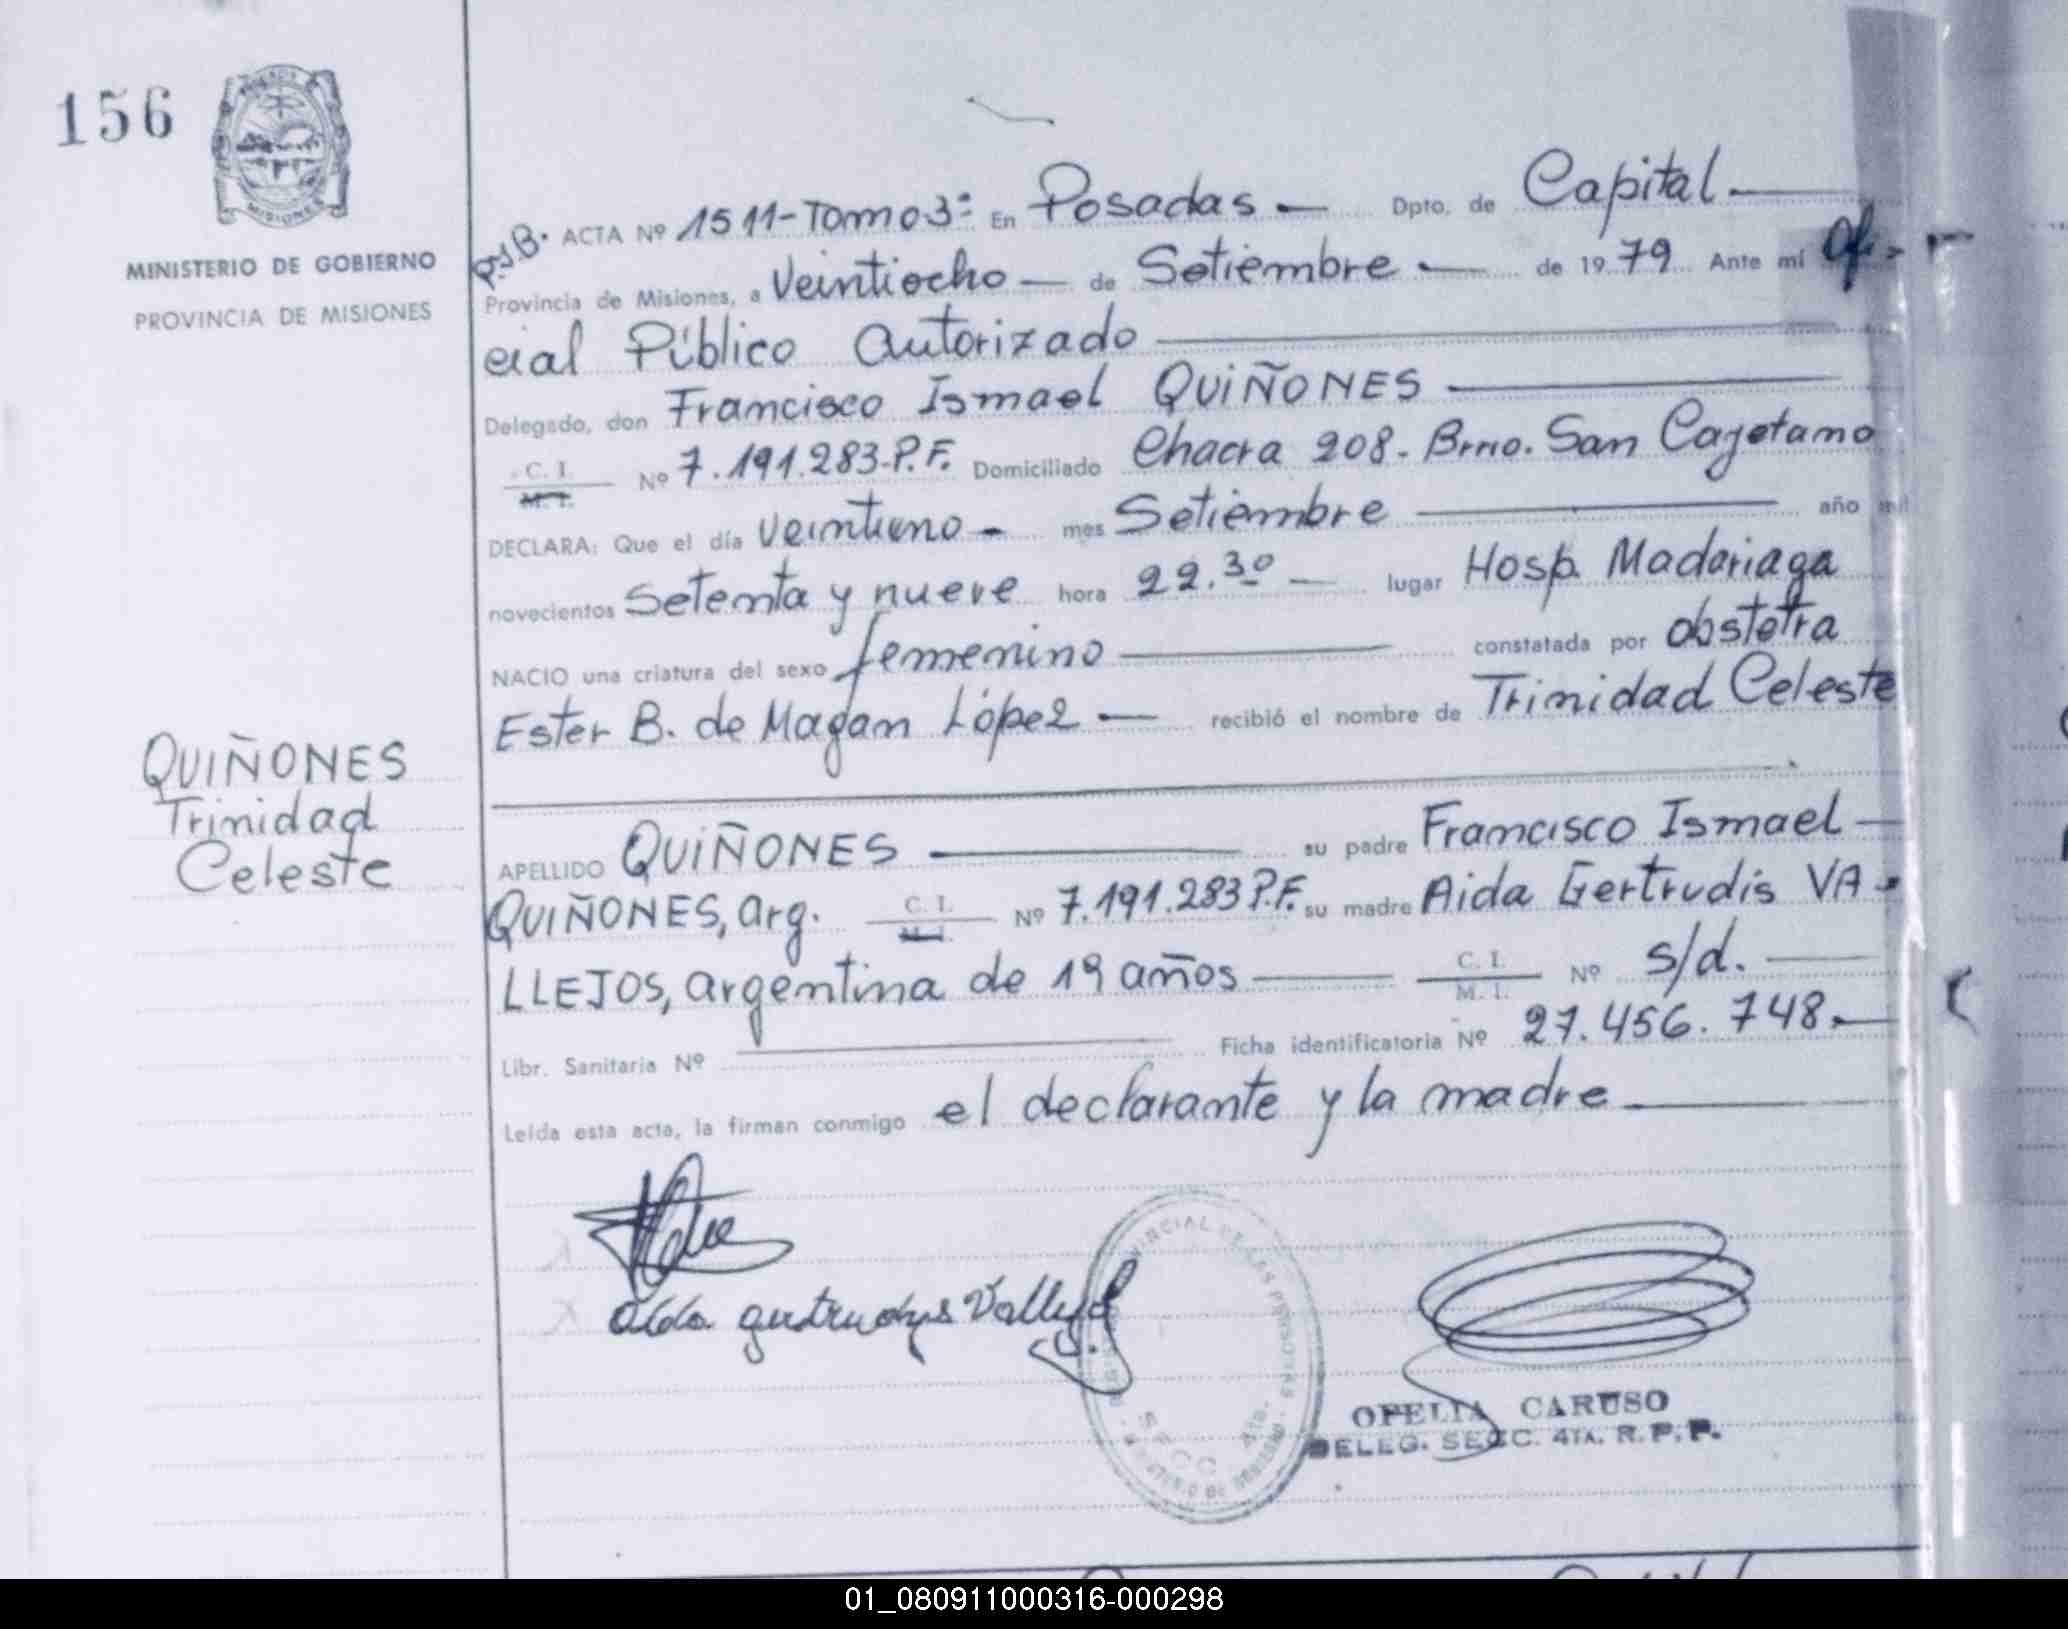 156
MISIONES
MINISTERIO DE GOBIERNO
PROVINCIA DE MISIONES
QUIÑONES
Trinidad
Celeste
ACTA Nº 1511-Tomo 3º En Posadas — Dpto. de Capital —
Provincia de Misiones, a Veintiocho — de Setiembre — de 1979 Ante mí Ofi-
cial Público Autorizado —
Delegado, don Francisco Ismael QUIÑONES —
C. I.
M. I. Nº 7.191.283-P.F. Domiciliado Chacra 208- Brrio. San Cayetano
DECLARA: Que el día Veintiuno - mes Setiembre — año mil
novecientos Setenta y nueve hora 22.30 — lugar Hosp. Madariaga
NACIO una criatura del sexo femenino — constatada por obstetra
Ester B. de Magan López — recibió el nombre de Trinidad Celeste
APELLIDO QUIÑONES — su padre Francisco Ismael —
QUIÑONES, arg. C. I.
M. I. Nº 7.191.283 P.F. su madre Aida Gertrudis VA-
LLEJOS, argentina de 19 años — C. I.
M. I. Nº s/d. —
Libr. Sanitaria Nº — Ficha identificatoria Nº 27.456.748.—
Leída esta acta, la firman conmigo el declarante y la madre —
SECC. 4ta.
OFELIA CARUSO
DELEG. SECC. 4TA. R. P. P.
01_080911000316-000298